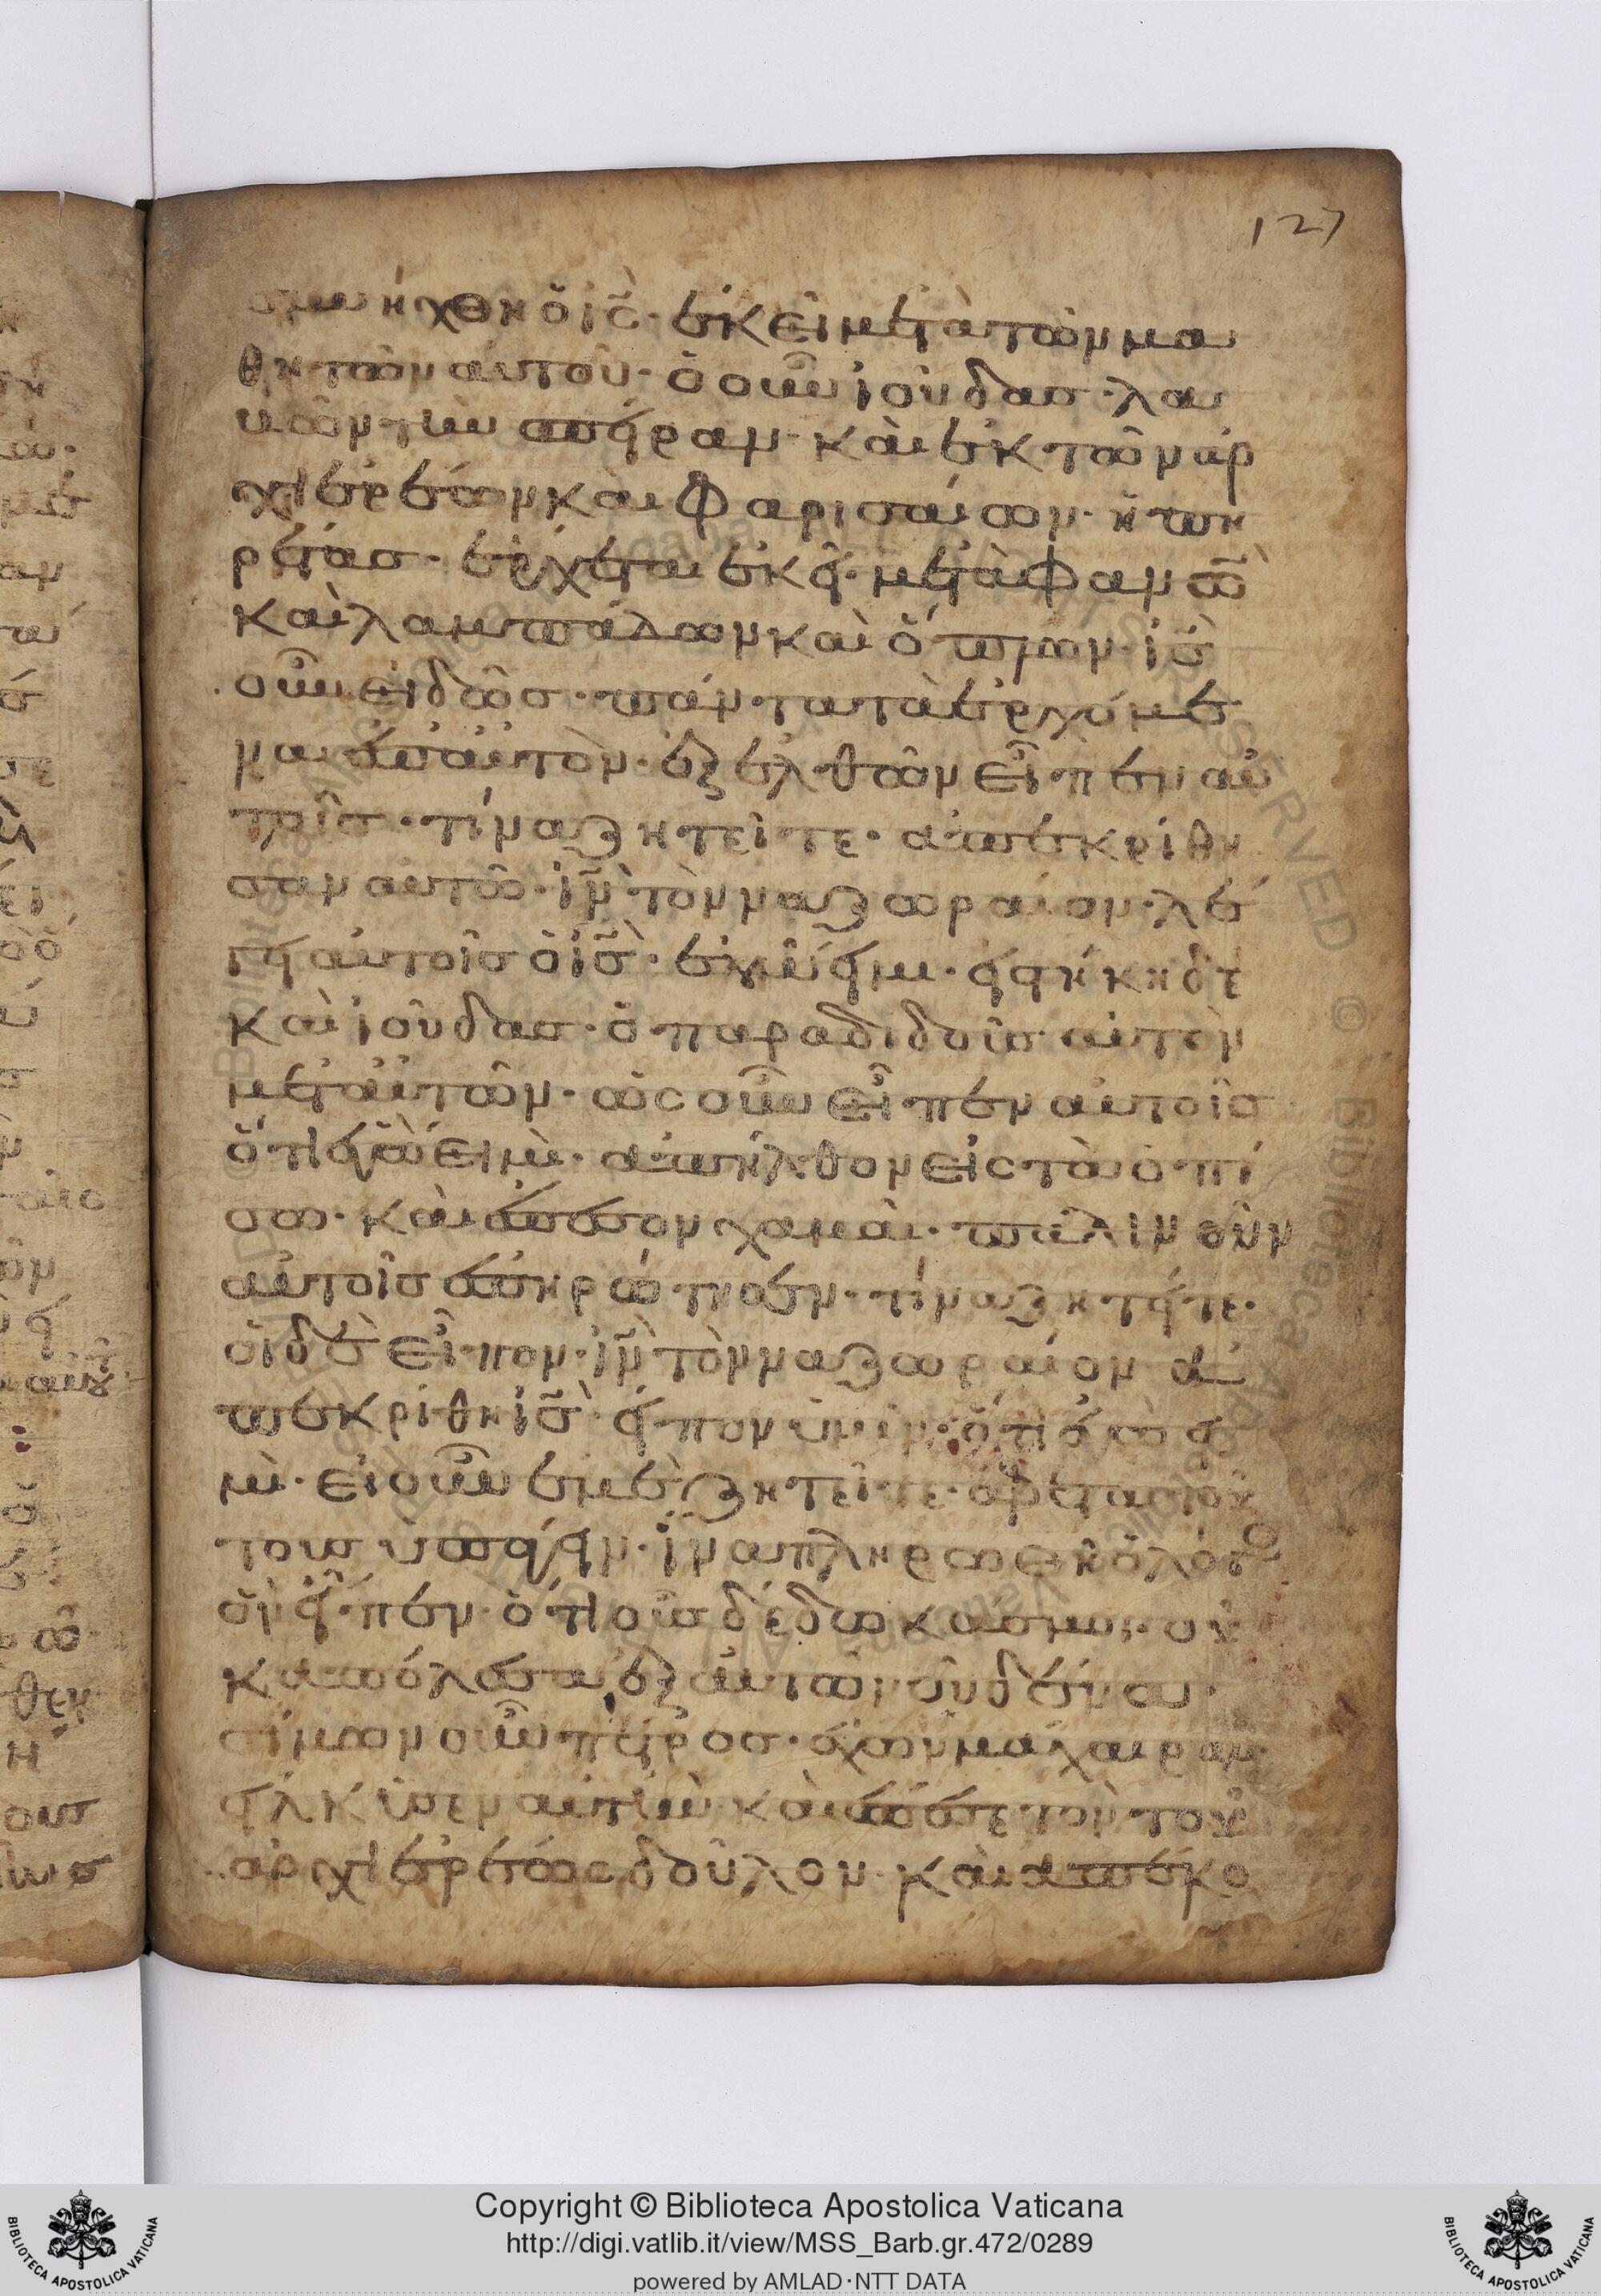 127
συνήχθη ὁ ἰς̃· ἐκεῖ μετὰ τῶν μα
θητῶν αὐτοῦ· ὁ οὖν ἰούδασ· λα
βὼν τὴν σπεῖραν· καὶ ἐκ τῶν ἀρ
χιερέων καὶ φαρισαίων· ὑπη
ρέτασ· ἔρχεται ἐκεῖ· μετὰ φανῶ̅
καὶ λαμπάδων καὶ ὅπλων· ἰς̃
οὖν εἰδὼσ· πάντα τὰ ἐρχόμε
να ἐπ' αὐτὸν· ἐξελθὼν εἶπεν αὐ
τοῖσ· τίνα ζητεῖτε· ἀπεκρίθη
σαν αὐτῶ· ἰν̃ τὸν ναζωραῖον· λέ
γει αὐτοῖσ ὁ ἰς̃· ἐγώ εἰμι· εἱστήκει δὲ
καὶ ἰούδασ· ὁ παραδιδοὺσ αὐτὸν
μετ' αὐτῶν· ὡς οὖν εἶπεν αὐτοῖσ
ὅτι ἐγώ εἰμὶ· ἀπῆλθον εἰς τὰ ὀπί
σω· καὶ ἔπεσον χαμαὶ· πάλιν οὖν
αὐτοῖσ ἐπηρώτησεν· τίνα ζητεῖτε·
οἱ δὲ εἶπον· ἰν̃ τὸν ναζωραῖον ἀ
πεκρίθη ἰς̃· εἶπον ὑμῖν· ὅτι ἐγώ εἰ
μὶ· εἰ οὖν ἐμὲ ζητεῖτε· ἄφετε τού
τουσ ὑπάγειν· ἵνα πληρωθῆ ὁ λόγο
ὃν εἶπεν· ὅτι οὓσ δέδωκάσ μοι· οὐ
κ ἀπώλεσα ἐξ αὐτῶν οὐδένα·
σίμων οὖν πέτροσ· ἔχων μάχαιραν·
εἵλκυσεν αὐτὴν· καὶ ἔπαισε τὸν τοῦ
ἀρχιερέως δοῦλον· καὶ ἀπέκο
Copyright © Biblioteca Apostolica Vaticana
http://digi.vatlib.it/view/MSS_Barb.gr.472/0289
powered by AMLAD·NTT DATA
BIBLIOTECA APOSTOLICA VATICANA
BIBLIOTECA APOSTOLICA VATICANA